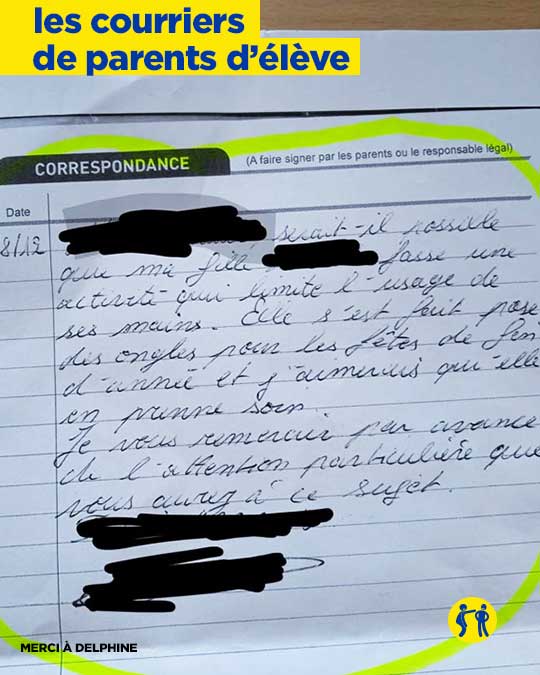 les courriers
de parents d'élève
CORRESPONDANCE
(A faire signer par les parents ou le responsable légal)
Date
8/12
serait-il possible
que ma fille fasse une
activité qui limite l'usage de
ses mains. Elle s'est fait pose
des ongles pour les fêtes de fin
d'année et j'aimerais qu'elle
en prenne soin.
Je vous remercie par avance
de l'attention particulière que
vous aurez à ce sujet.
MERCI À DELPHINE